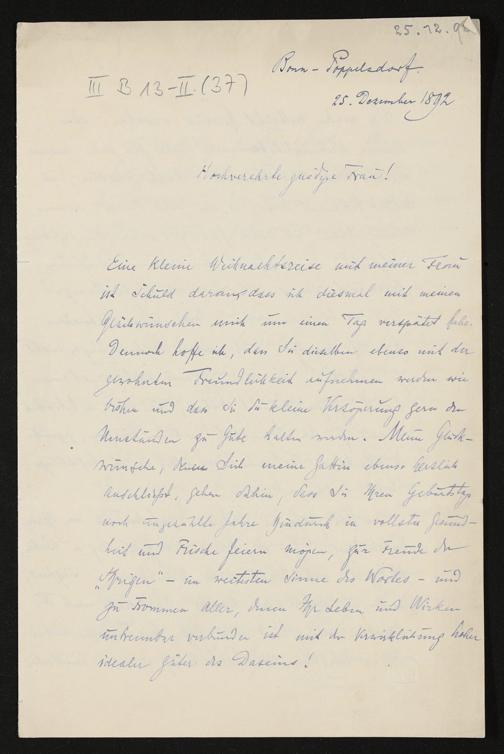 25.12.92
Bonn-Poppelsdorf.
III B 13-II.(37)
25. Dezember 1892
Hochverehrte gnädige Frau!
Eine kleine Weihnachtsreise mit meiner Frau
ist Schuld daran, dass ich diesmal mit meinen
Glückwünschen mich um einen Tag verspätet habe.
Dennoch hoffe ich, dass Sie dieselben ebenso mit der
gewohnten Freundlichkeit aufnehmen werden wie
früher und dass Sie die kleine Verzögerung gern den
Umständen zu Gute halten werden. Meine Glück-
wünsche, denen sich meine Gattin ebenso herzlich
anschliesst, gehen dahin, dass Sie Ihren Geburtstag
noch ungezählte Jahre hindurch in vollster Gesund-
heit und Frische feiern mögen, zur Freude der
"Ihrigen" - im weitesten Sinne des Wortes - und
zu Frommen aller, denen Ihr Leben und Wirken
untrennbar verbunden ist mit der Verwirklichung hoher
idealer Güter des Daseins!